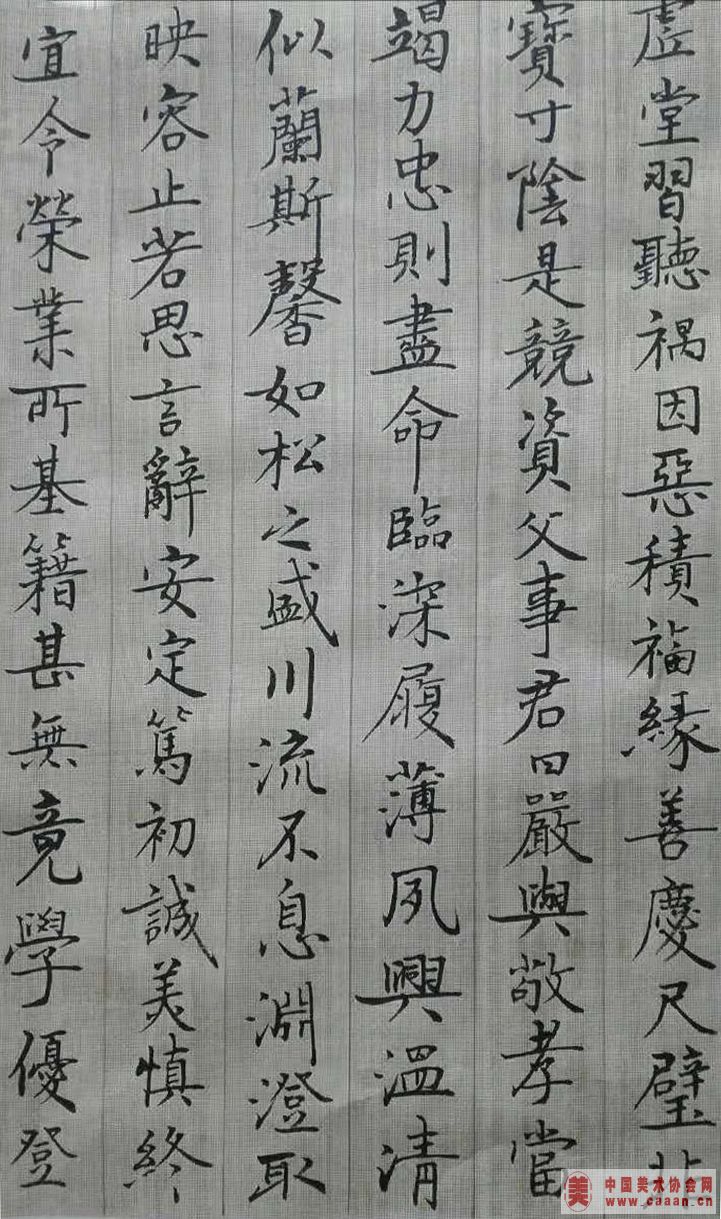 虛堂習聽禍因惡積福緣善慶尺璧非
寶寸陰是競資父事君曰嚴與敬孝當
竭力忠則盡命臨深履薄夙興溫清
似蘭斯馨如松之盛川流不息淵澄取
映容止若思言辭安定篤初誠美慎終
宜令榮業所基籍甚無竟學優登
中国美术协会网
www.caaan.cn